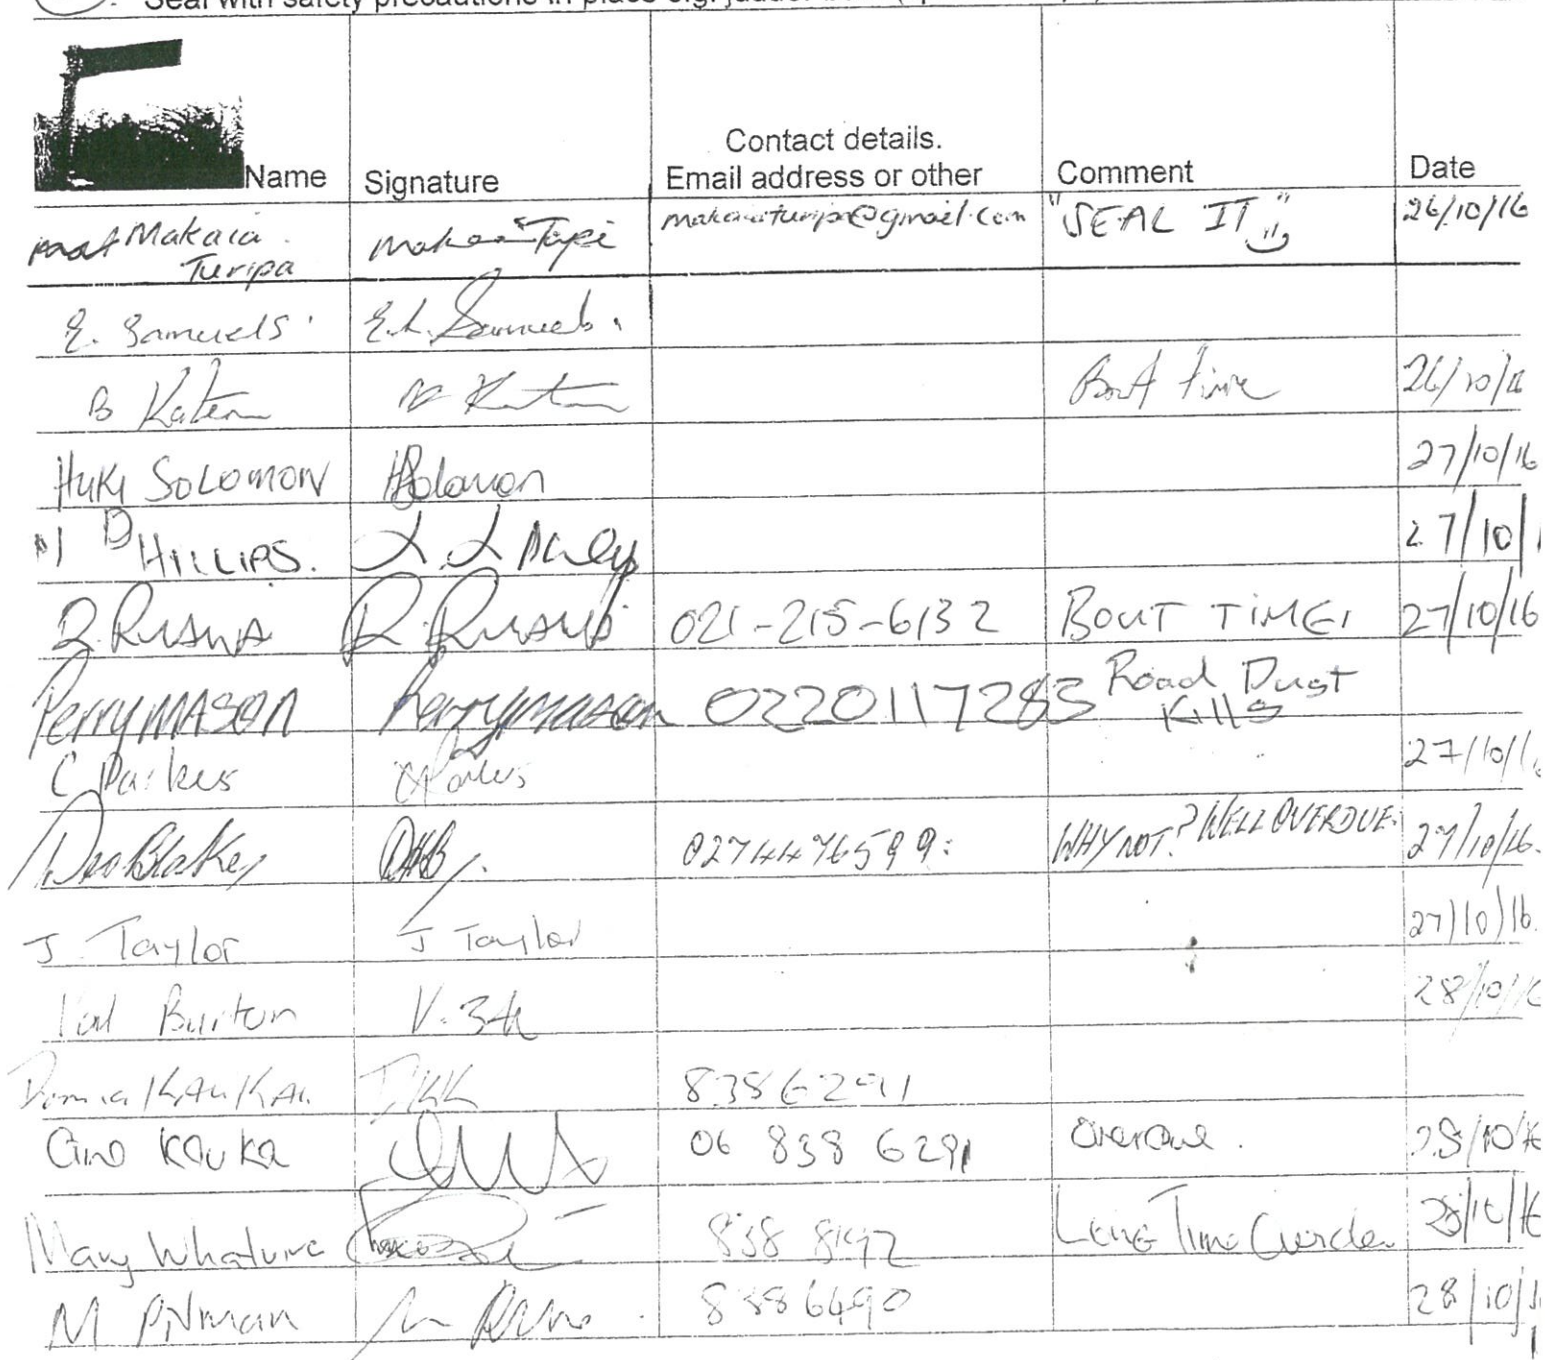 Seal with safety precautions in place e.g. judder
Name Signature Contact details. Email address or other Comment Date
Makaia Turipa makaiaturipa@gmail.com "SEAL IT" 26/10/16
E. Samuels E.L. Samuels.
B Katene 26/10/16
Bout time
HUKI SOLOMON HSolomon 27/10/16
PHILLIPS. 27/10/1
R. Ruawai 021-215-6132 BOUT TIME! 27/10/16
Perry MASON Perrymason 0220117283 Road Dust Kills
C Parkes CParkes 27/10/1
0274476599: WHY NOT? WELL OVERDUE. 27/10/16.
J. Taylor J Taylor 27/10/16.
Val Burton 28/10/16
Donna KAUKAU. DKK 8386291
Gino Kauka 06 838 6291 Overdue. 28/10/16
Mary Whatuira 838 8192 Long Time Overdue 28/10/16
M Pitman 8386490 28/10/1